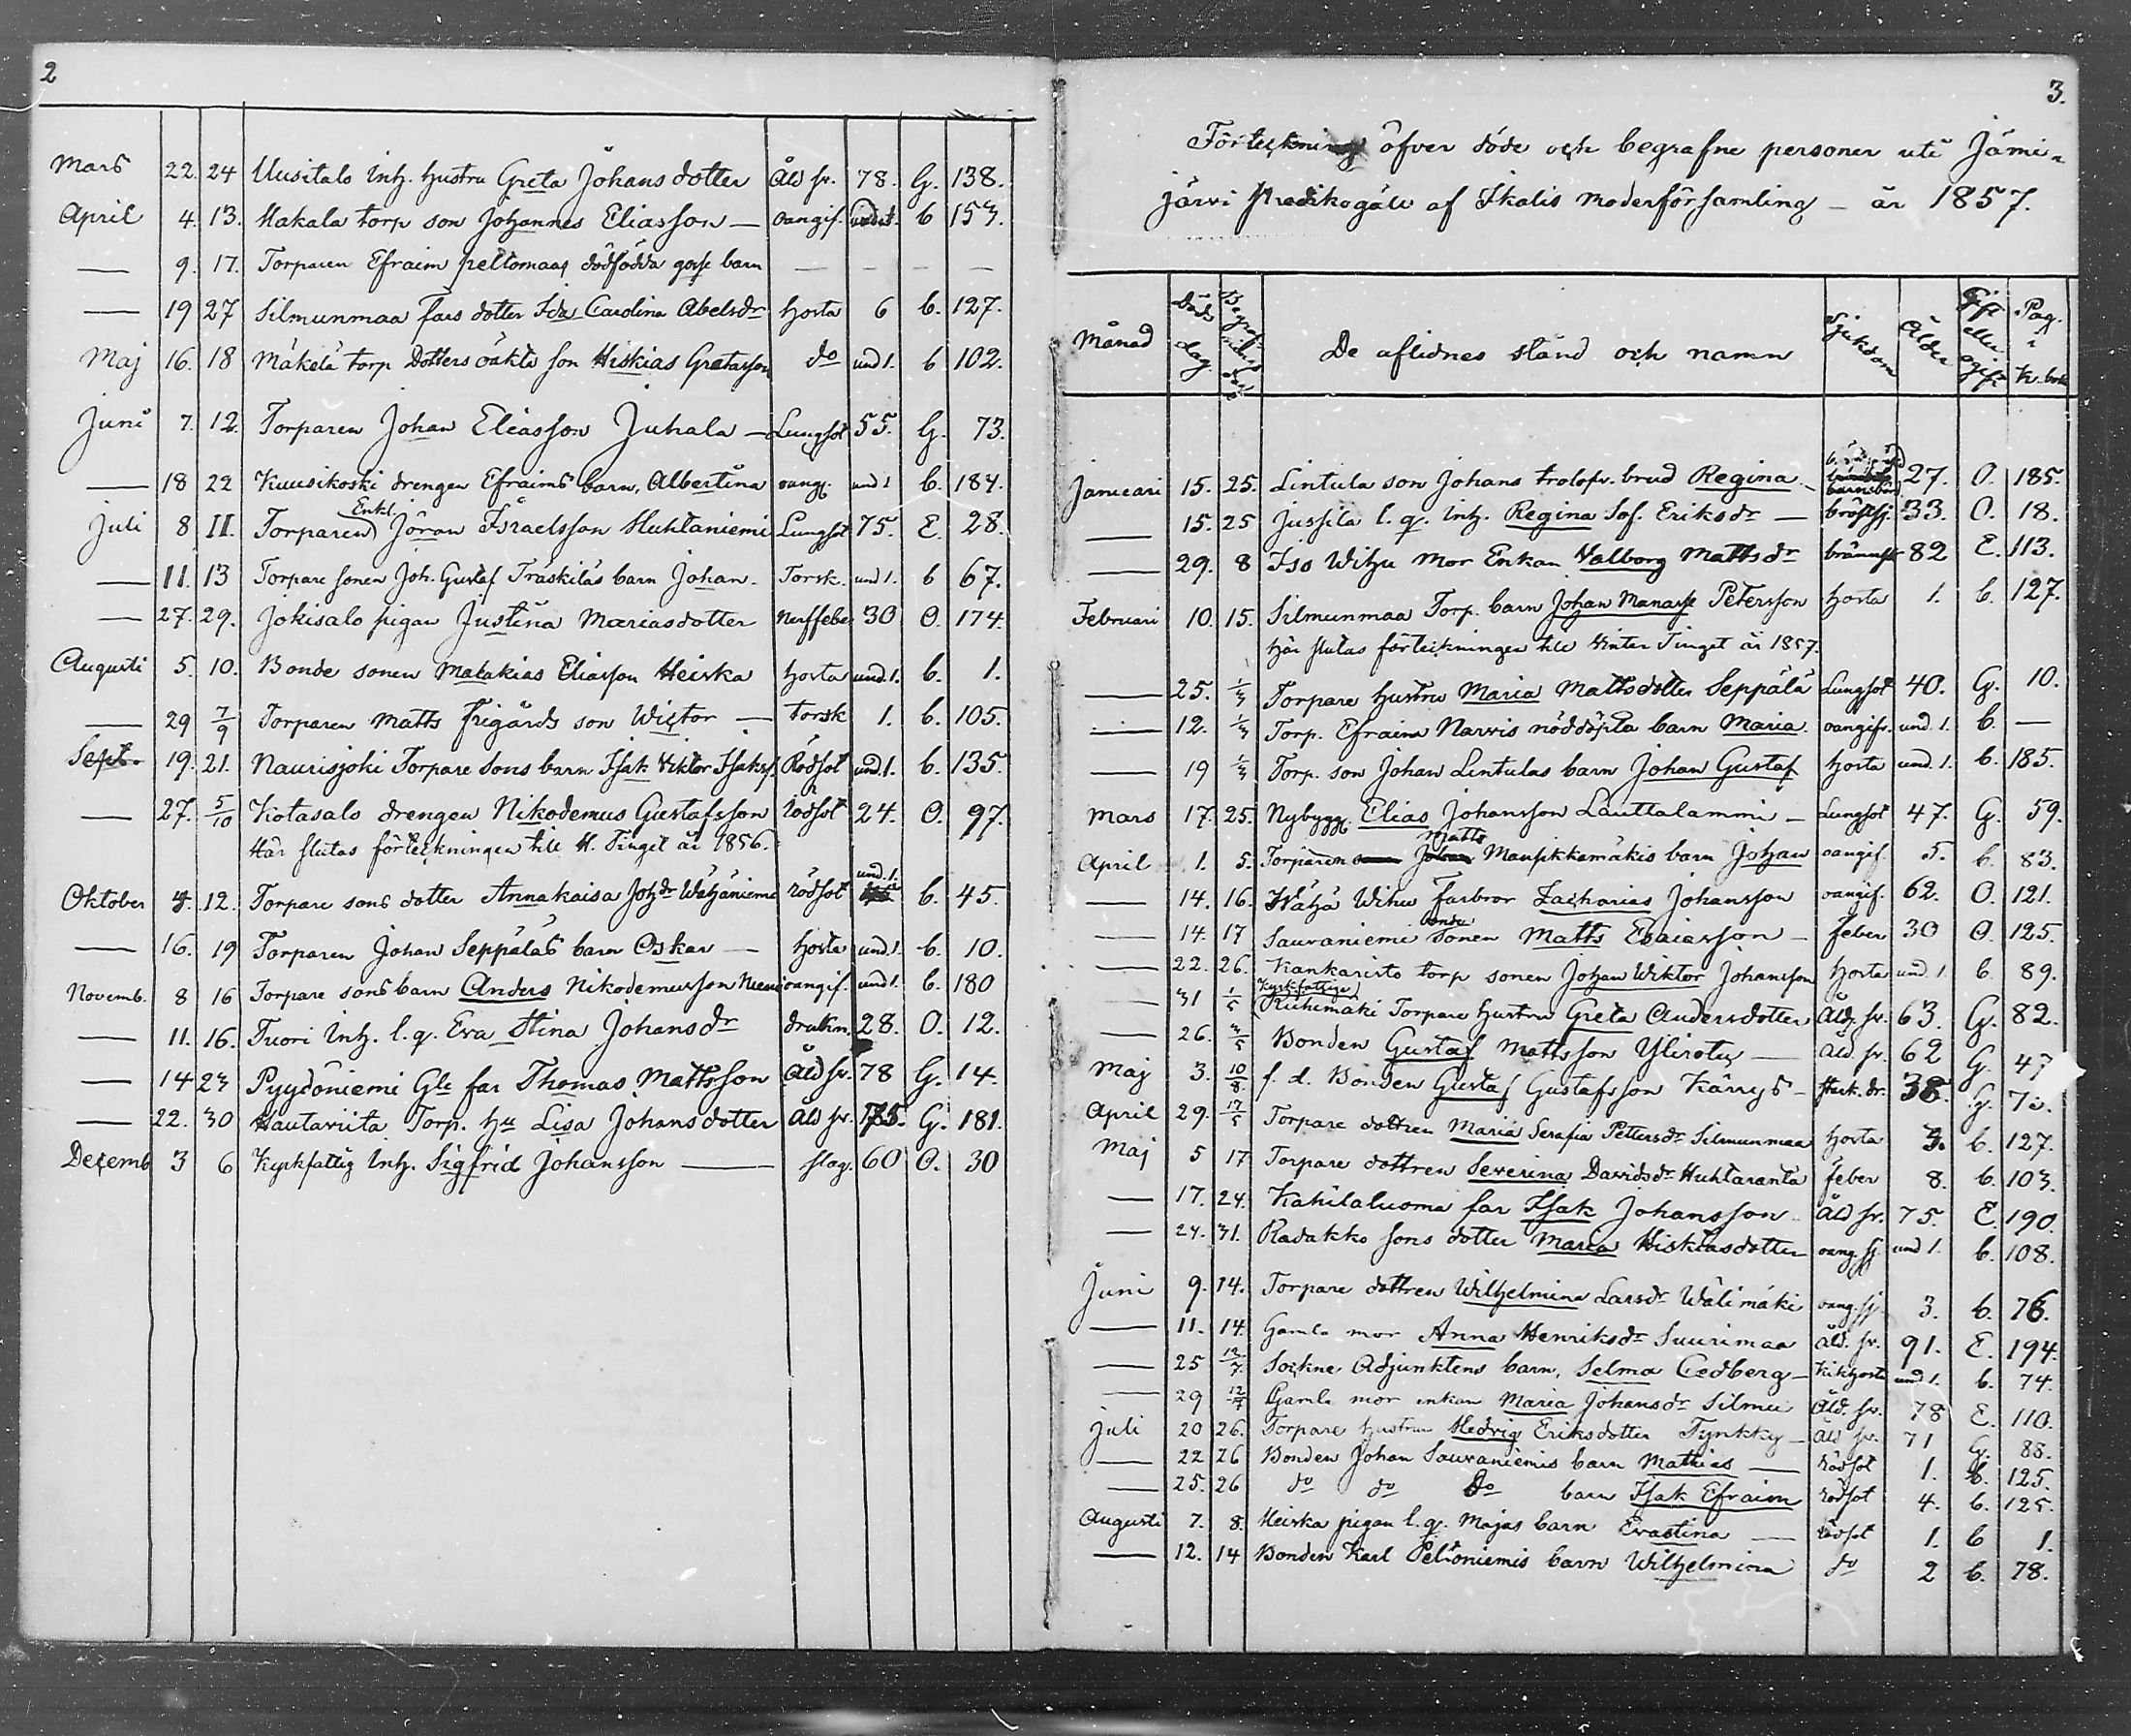 2
Mars 22. 24 Uusitalo Inh. hustru Greta Johans dotter Åld sv. 78. G. 138.
April 4. 13. Makala torp son Johannes Eliasson — oangif. b 153.
— 9. 17. Torparen Efraim peltomaas dödfödda gosse barn — — — —
— 19 27 Silmunmaa fars dotter Ida Carolina Abelsdr hosta 6 b. 127.
Maj 16. 18 Mäkelä torp Dotters oäkta son Hiskias Gretasson do und 1. b 102.
Juni 7. 12. Torparen Johan Eliasson Juhala — Lungsot 55. G. 73.
— 18 22 Kuusikoski drengen Efraims barn, Albertina oang. und 1 b. 184.
Enkl.
Juli 8 11. Torparen Jöran Israelsson Huhtaniemi Lungsot 75. E. 28.
— 11. 13 Torpare sonen Joh. Gustaf Träskiläs barn Johan - Torsk. und 1. b 67.
— 27. 29. Jokisalo pigan Justina Mariasdotter Nerffeber 30 O. 174.
Augusti 5. 10. Bonde sonen Malakias Eliasson Heiska hosta und. 1. b. 1.
— 29 7/9 Torparen Matts Frigårds son Wictor — torsk 1. b. 105.
Sept. 19. 21. Naurisjoki Torpare Sons barn Isak Viktor Isakss. Rödsot und. 1. b. 135.
— 27. 5/10 Kotasalo drengen Nikodemus Gustafsson rödsot 24. O. 97.
Här slutas förteckningen till H. Tinget år 1856.
und. 1.
Oktober 12. Torpare sons dotter Annakaisa Johdr Wähäniemi rödsot b. 45.
— 16. 19 Torparen Johan Seppäläs barn Oskar — hosta und 1. b. 10.
Novemb. 8 16 Torpare sons barn Anders Nikodemusson Niemi oangif. und 1. b. 180
— 11. 16. Tuori Inh. l. q. Eva Stina Johansdr drukn. 28. O. 12.
— 14 23 Pyydöniemi Gle far Thomas Mattsson Åld sv. 78 G. 14.
— 22. 30 Hautaviita Torp. hu Lisa Johansdotter Åld sv. 75. G. 181.
Decemb 3 6 Kyrkfattig Inh. Sigfrid Johansson — slag. 60 O. 30
3.
Förteckning öfver döde och begrafne personer uti Jämi-
järvi Predikogäll af Ikalis moderförsamling — år 1857.
Månad Döds dag Begrafnings dag De aflidnes stånd och namn Sjukdom Ålder Gift eller ogift Pag. i K. bok
Januari 15. 25. Lintula son Johans trolofv. brud Regina — barnsbörd 27. O. 185.
— 15. 25 Jussila l. q. Inh. Regina Sof. Eriksdr — bröstsj. 33. O. 18.
— 29. 8 Iso Wihu Mor Enkan Valborg Mattsdr 82 E. 113.
Februari 10. 15. Silmunmaa Torp. barn Johan Manasse Petersson hosta 1. b. 127.
Här slutas förteckningen till Vinter Tinget år 1857.
— 25. 1/3 Torpare hustru Maria Mattsdotter Seppälä Lungsot 40. G. 10.
— 12. 1/3 Torp. Efraim Narvis nöddöpta barn Maria. oangifv. und 1. b. —
— 19 1/3 Torp. son Johan Lintulas barn Johan Gustaf hosta und. 1. b. 185.
Mars 17. 25. Nybygg. Elias Johansson Lauttalammi — Lungsot 47. G. 59.
Matts
April 1. 5. Torparen Mansikkamäkis barn Johan oangif. 5. b. 83.
— 14. 16. Wähä Wihu farbror Zacharias Johansson oangif. 62. O. 121.
bonde
— 14. 17 Sauvaniemi sonen Matts Esaiasson — feber 30 O. 125.
— 22. 26. Kankaristo torp sonen Johan Wiktor Johansson hosta und. 1. b. 89.
Kyrkfattige
— 31 1/5 Riihimäki Torpare hustru Greta Andersdotter Åld. sv. 63. G. 82.
— 26. 3/5 Bonden Gustaf Mattsson Yliroty — Åld. sv. 62 G. 47
Maj 3. 10/8. f. d. Bonden Gustaf Gustafsson Kärrys — 38. G.
April 29. 17/5 Torpare dottren Maria Serafia Pettersdr Silmunmaa hosta 3. b. 127.
Maj 5 17 Torpare dottren Severina Davidsdr Huhtaranta feber 8. b. 103.
— 17. 24. Kahilaluoma far Isak Johansson Åld sv. 75. E. 190.
— 24. 31. Radakko sons dotter Maria Hiskiasdotter oang. sj. und 1. b. 108.
Juni 9. 14. Torpare dottren Wilhelmina Larsdr Wälimäki oang. sj. 3. b. 76.
— 11. 14. Gamla mor Anna Henriksdr Suurimaa åld. sv. 91. E. 194.
— 25 12/7. Sockne Adjunktens barn, Selma Cedberg — Kikhosta und 1. b. 74.
— 29 12/7 Gamla mor enkan Maria Johansdr Silmu Åld. sv. 78 E. 110.
Juli 20 26. Torpare hustrun Hedvig Eriksdotter Tynkky — Åld sv. 71 G. 88.
— 22 26 Bonden Johan Sauvaniemis barn Mathias — rödsot 1. b. 125.
— 25. 26 do do do barn Isak Efraim rödsot 4. b. 125.
Augusti 7. 8. Heiska pigan l. q. Majas barn Evastina — rödsot 1. b 1.
— 12. 14 Bonden Karl Peltoniemis barn Wilhelmina do 2 b. 78.